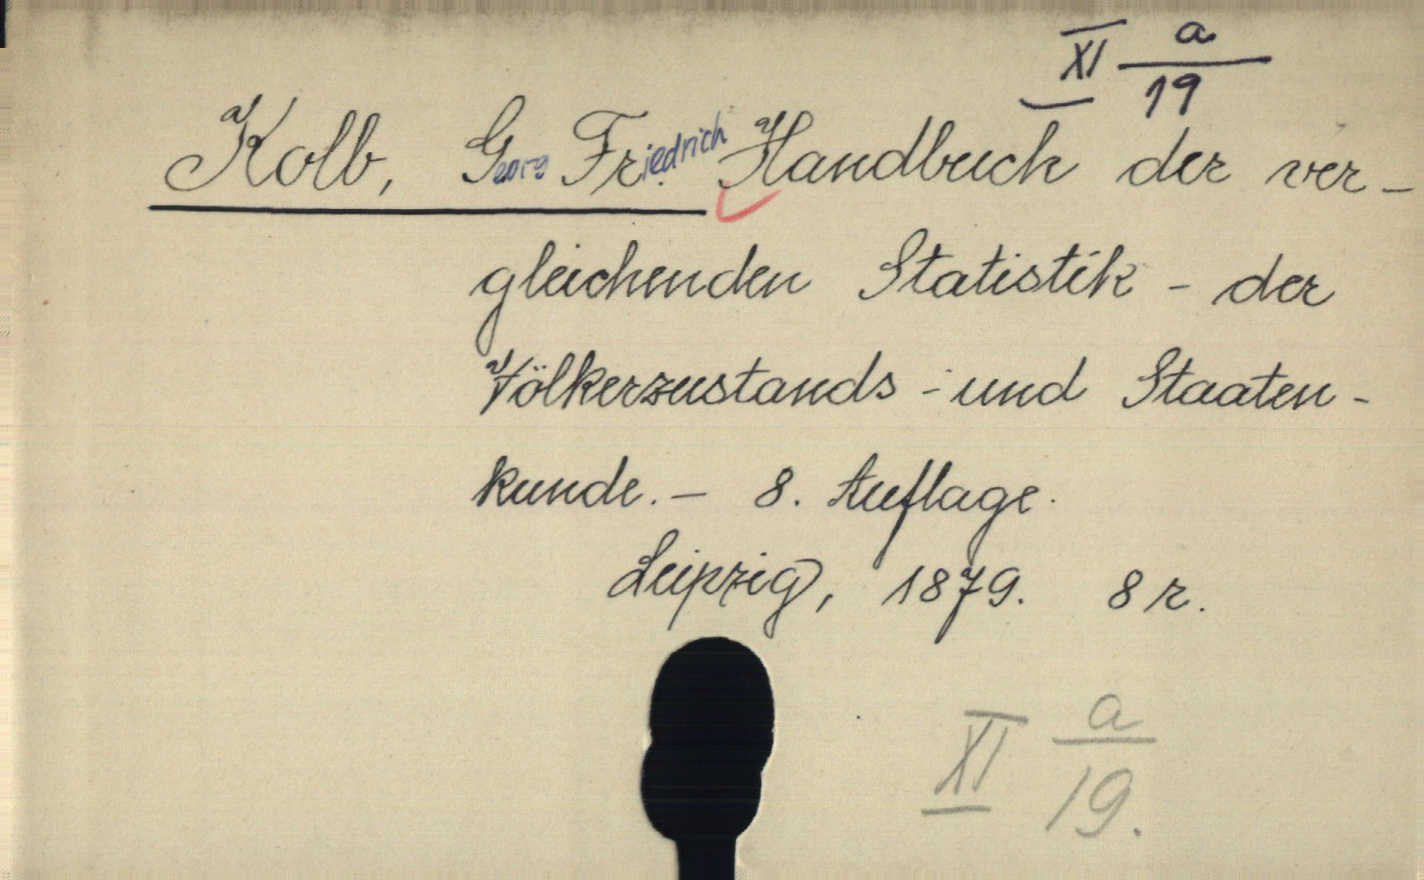 XI a/19
Kolb, Georg Friedrich Handbuch der ver-
gleichenden Statistik - der
Völkerzustands - und Staaten-
kunde. - 8. Auflage.
Leipzig, 1879. 8 r.
XI a/19.